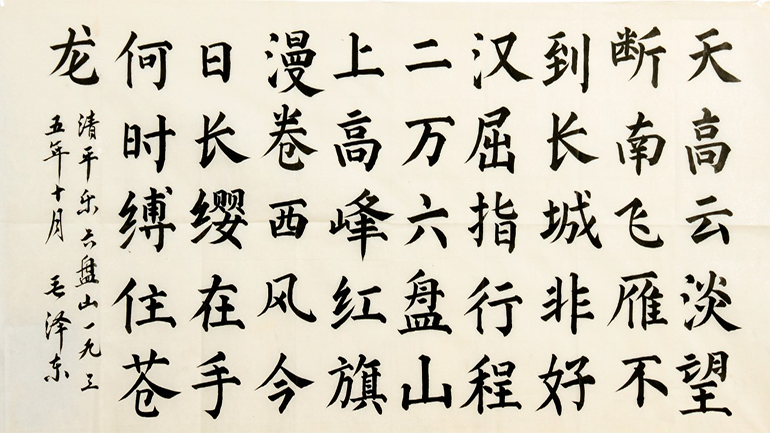 天高云淡望
断南飞雁不
到长城非好
汉屈指行程
二万六盘山
上高峰红旗
漫卷西风今
日长缨在手
何时缚住苍
龙
清平乐六盘山一九三
五年十月 毛泽东